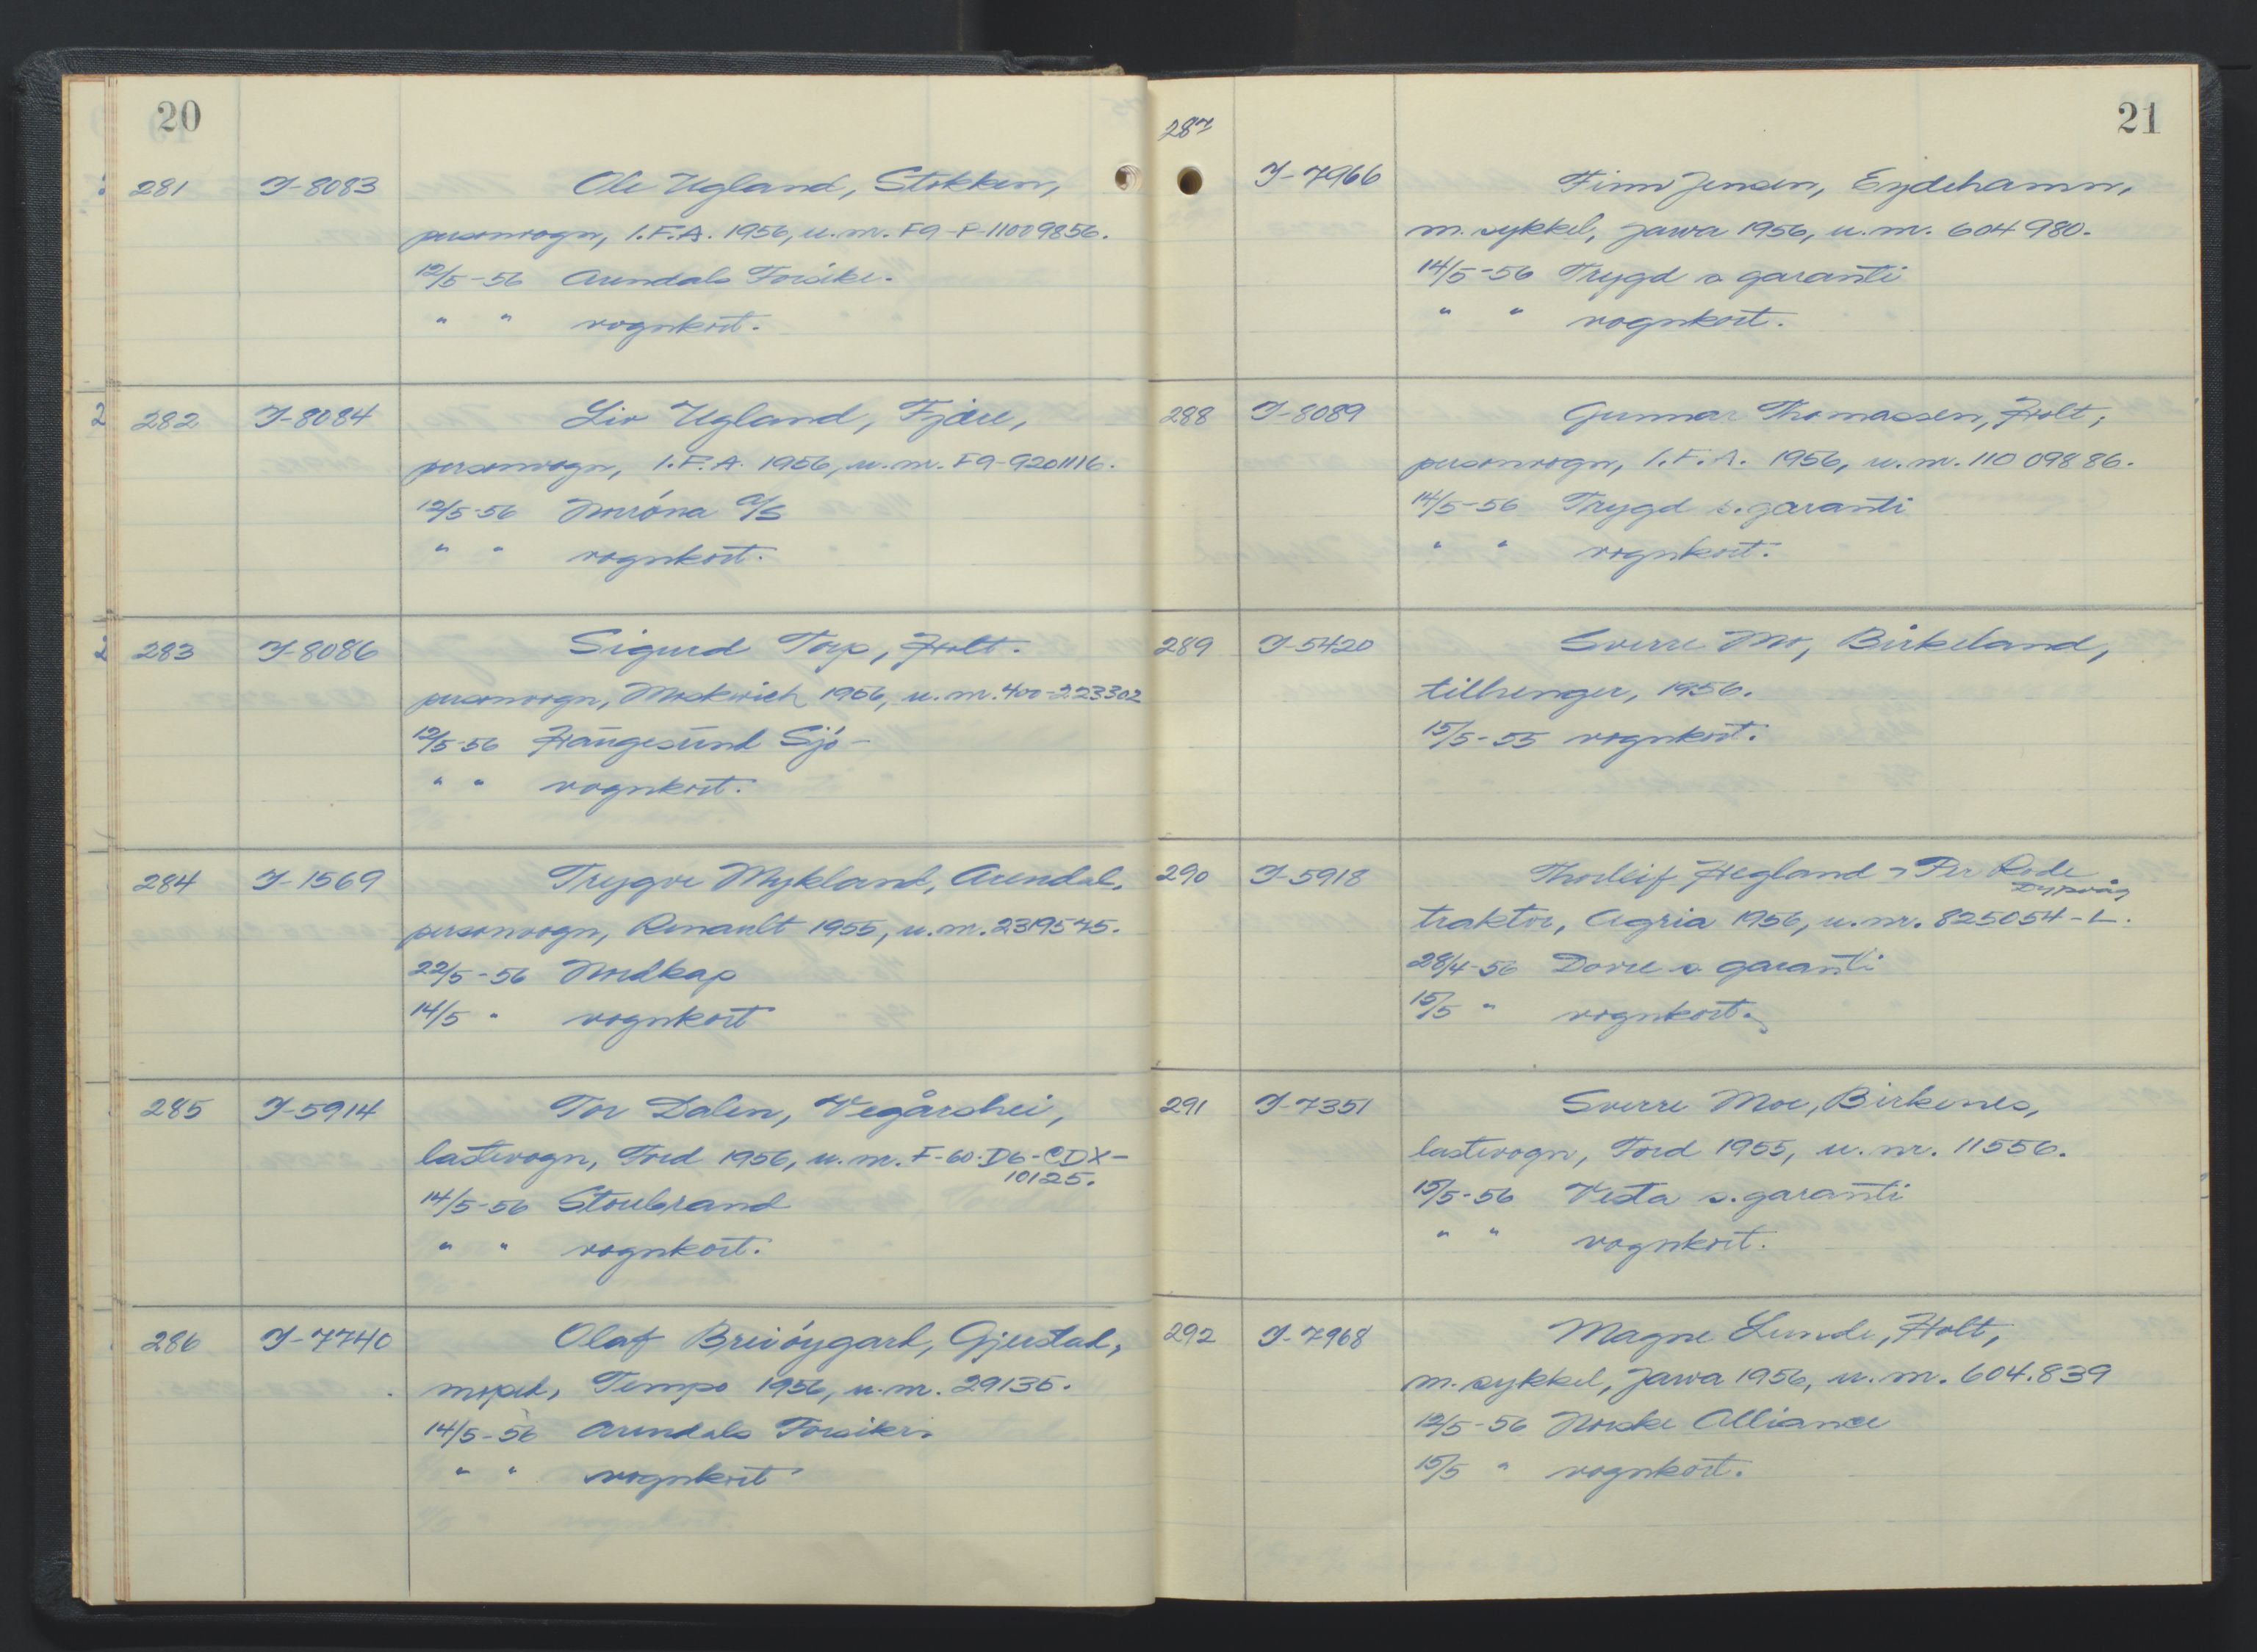 20
281 I-8083 Ole Ugland, Stokken,
personvogn, I.F.A. 1956, u.nr. F9-P-11009856.
12/5-56 Arendals Forsikr.
" " vognkort.
282 I-8084 Liv Ugland, Fjære,
personvogn, I.F.A. 1956, u.nr. F9-9201116.
12/5-56 Norróna A/S
" " vognkort.
283 I-8086 Sigurd Torp, Holt.
personvogn, Moskvich 1956, u.nr. 400-223302
12/5-56 Haugesund Sjó-
" " vognkort.
284 I-1569 Trygve Mykland, Arendal.
personvogn, Renault 1955, u.nr. 2319545.
22/5-56 Nordkap
14/5 " vognkort
285 I-5914 Tor Dalen, Vegårshei,
lastevogn, Ford 1956, u.nr. F-60-D6-CDX-
10125.
14/5-56 Storebrand
" " vognkort.
286 I-7740 Olaf Brevóygard, Gjerstad,
moped, Tempo 1956, u.nr. 29135.
14/5-56 Arendals Forsikr.
" " vognkort
21
287
I-7966 Finn Jensen, Eydehamn,
m.sykkel, Jawa 1956, u.nr. 604980.
14/5-56 Trygd s garanti
" " vognkort.
288 I-8089 Gunnar Thomassen, Holt,
personvogn, I.F.A. 1956, u.nr. 110 098 86.
14/5-56 Trygd s.garanti
" " vognkort.
289 I-5420 Sverre Mo, Birkeland,
tilhenger, 1956.
15/5-55 vognkort.
290 I-5918 Thorleif Hegland - Per Rode
Dypvåg
traktor, Agria 1956, u.nr. 825054-L.
28/4-56 Dovre s garanti
15/5 " vognkort.
291 I-7351 Sverre Moe, Birkenes,
lastevogn, Ford 1955, u.nr. 11556.
15/5-56 Vesta s.garanti
" " vognkort.
292 I-7968 Magne Lunde, Holt,
m.sykkel, Jawa 1956, u.nr. 604.839
12/5-56 Norske Alliance
15/5 " vognkort.